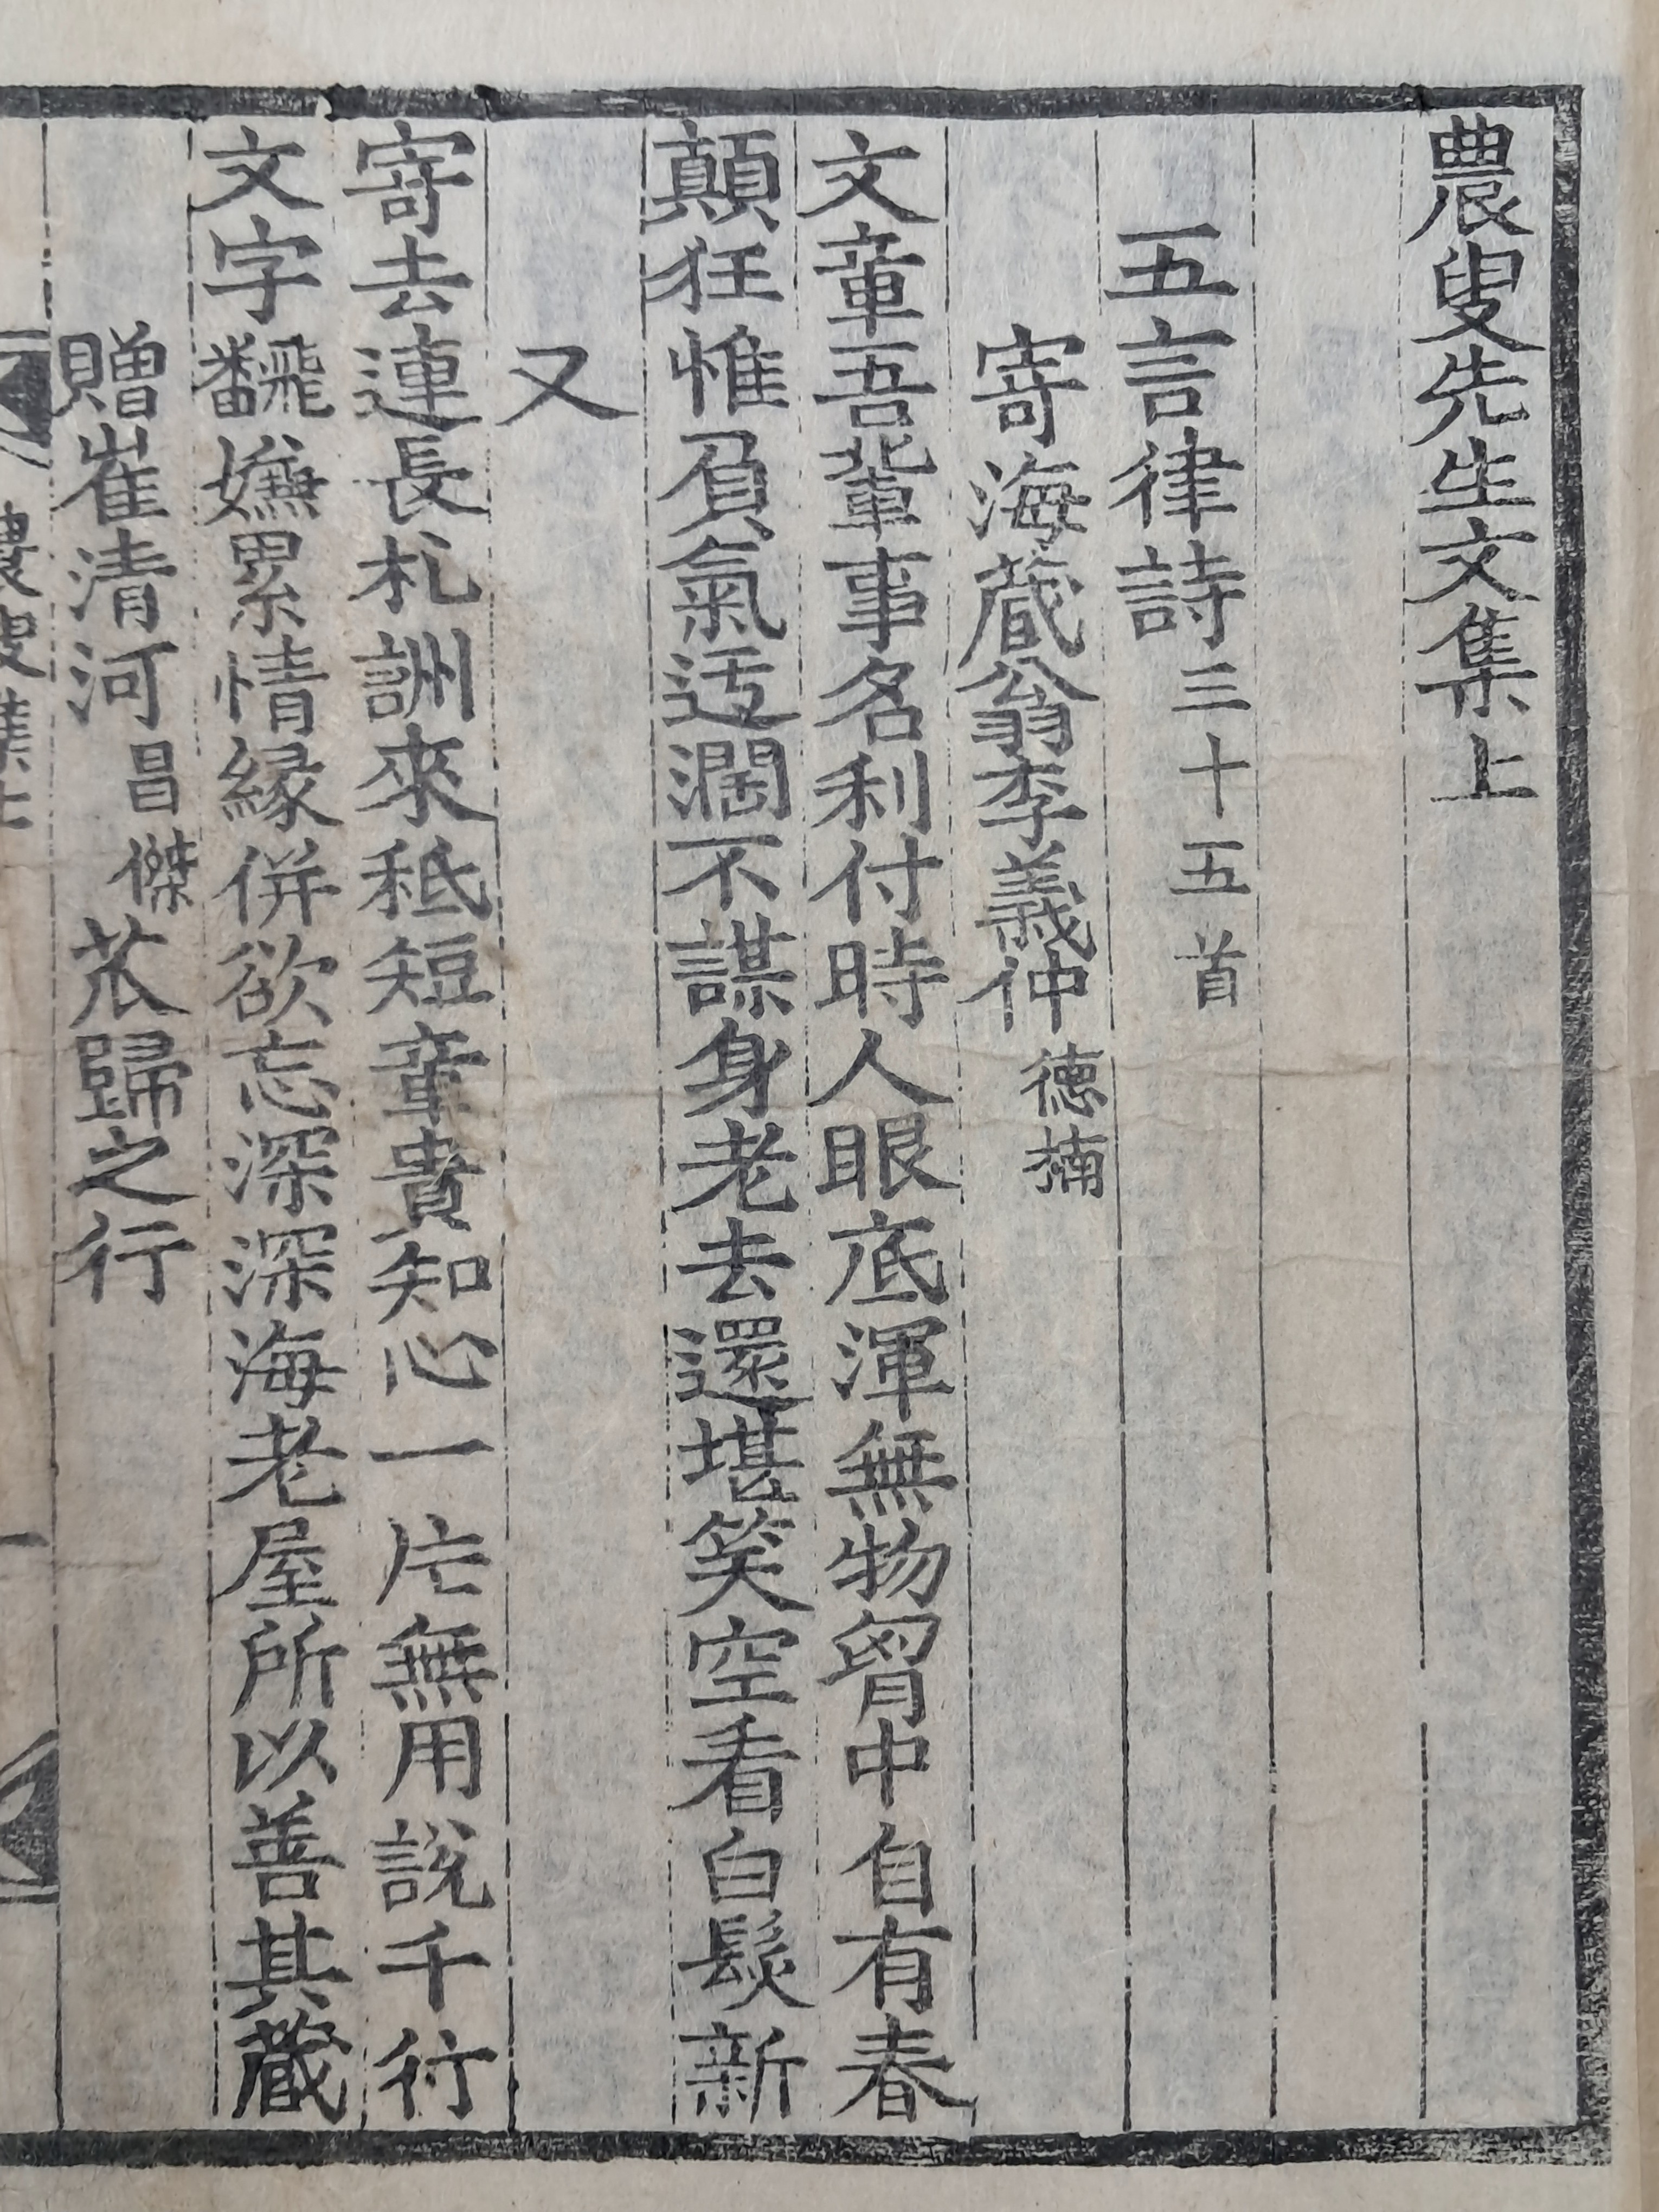 農叟先生文集上
五言律詩 三十五首
寄海蔵翁李義仲 德𢰅
文章吾輩事名利付時人眼底渾無物胷中自有春
顛狂惟負氣迃濶不謀身老去還堪笑空看白髮新
又
寄去連長札詶來秪短章貴知心一片無用說千行
文字飜嫌累情緣併欲忘深深海老屋所以善其蔵
贈崔清河 昌傑 苽歸之行
農叟集上
一